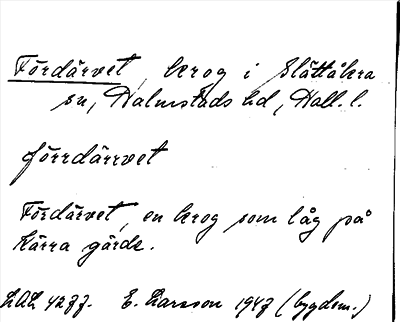 Fördärvet, krog i Slättåkra
sn, Halmstads hd, Hall. l.
förrdärrvet
Fördärvet, en krog som låg på
Kärra gärde.
LAL 4277. E. Larsson 1947 (bygdem.)